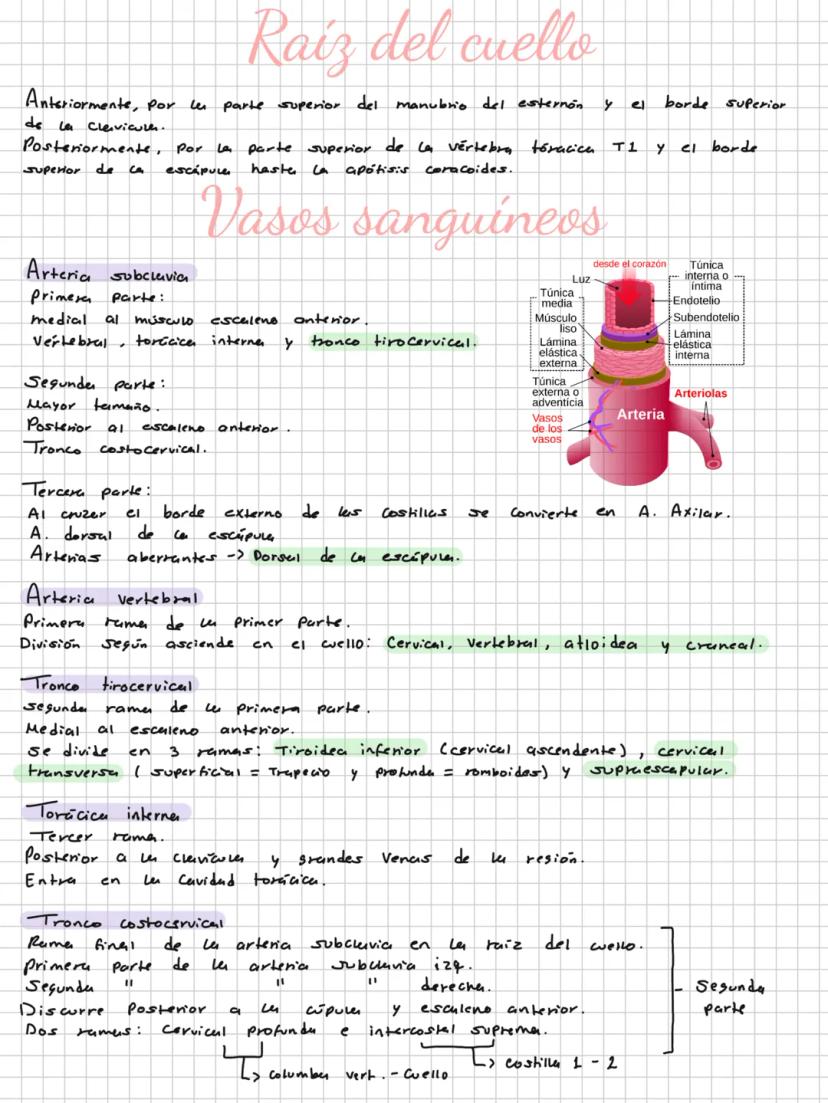 Raíz del cuello
Anteriormente, por la parte superior del manubrio del esternón y el borde superior
de la clavícula.
Posteriormente, por la parte superior de la vértebra tóracica T1 y el borde
superior de la escápula hasta la apófisis coracoides.
Vasos sanguíneos
Arteria subclavia
Primera parte:
medial al músculo escaleno anterior.
Vertebral, torácica interna y tronco tirocervical.
Segunda parte:
Mayor tamaño.
Posterior al escaleno anterior.
Tronco costocervical.
Tercera parte:
Al cruzar el borde externo de las costillas se convierte en A. Axilar.
A. dorsal de la escápula
Arterias aberrantes -> Dorsal de la escápula.
desde el corazón
Luz
Túnica
media
Músculo
liso
Lámina
elástica
externa
Túnica
externa o
adventicia
Vasos
de los
vasos
Túnica
interna o
íntima
Endotelio
Subendotelio
Lámina
elástica
interna
Arteriolas
Arteria
Arteria vertebral
Primera rama de la primer parte.
División según asciende en el cuello: Cervical, vertebral, atloidea y craneal.
Tronco tirocervical
segunda rama de la primera parte.
Medial al escaleno anterior.
se divide en 3 ramas: Tiroidea inferior (cervical ascendente), cervical
transversa (superficial = Trapecio y profunda = romboides) y supraescapular.
Torácica interna
Tercer rama.
Posterior a la clavícula y grandes venas de la región.
Entra en la cavidad torácica.
Tronco costocervical
Rama final de la arteria subclavia en la raíz del cuello.
Primera parte de la arteria subclavia izq.
Segunda " " " derecha.
Discurre Posterior a la cúpula y escaleno anterior.
Dos ramas: Cervical profunda e intercostal suprema.
Segunda
parte
-> columba vert. - Cuello
-> costilla 1 - 2